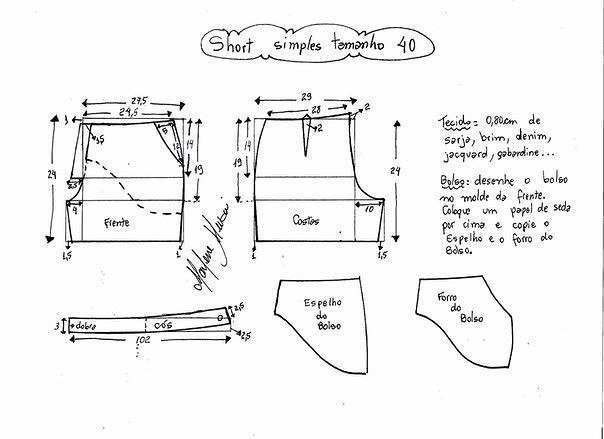 Short simples tamanho 40
27,5
24,5
3
1,5
8
12
14
19
24
3,5
4
Frente
1,5
1
29
28
2
2
14
19
24
Costas
10
1
1,5
Tecido = 0,80cm de
sarja, brim, denim,
jacquard, gabardine...
Bolso: desenhe o bolso
no molde da frente.
Coloque um papel de seda
por cima e copie o
Espelho e o forro do
Bolso.
3
dobra
cós
2,5
2,5
102
Espelho
do
Bolso
Forro
do
Bolso